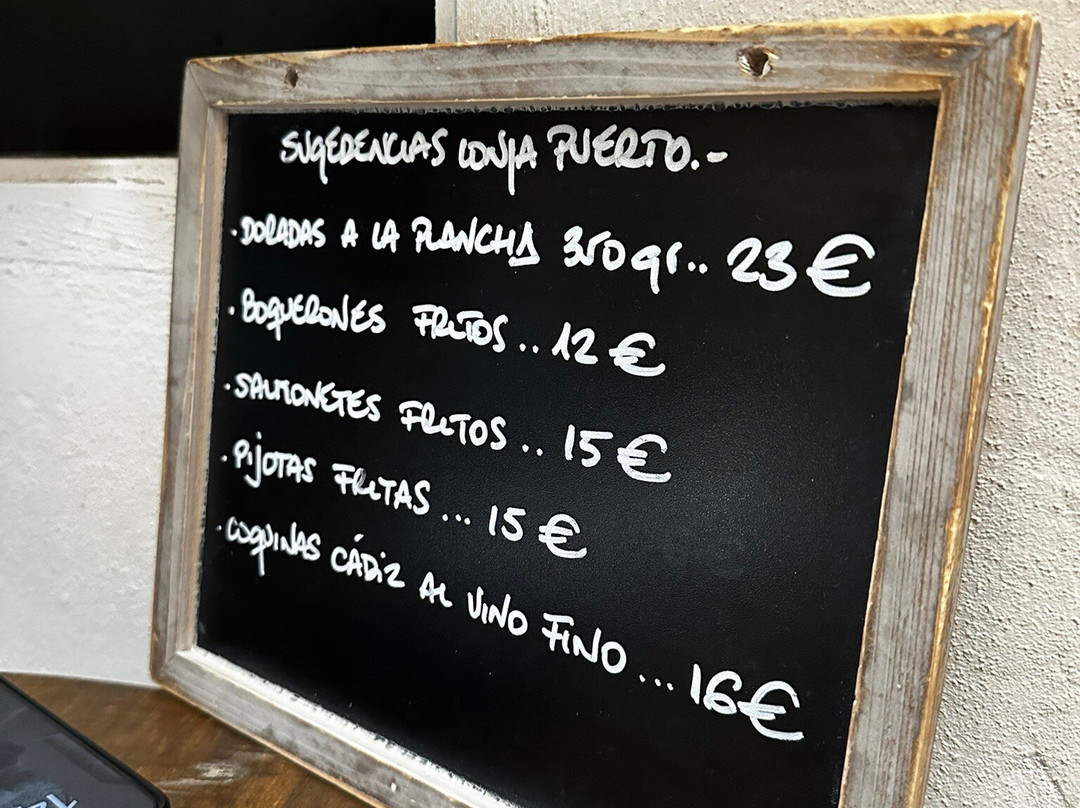 SUGERENCIAS LONJA PUERTO.-
·DORADAS A LA PLANCHA 350gr.. 23€
·BOQUERONES FRITOS .. 12€
·SALMONETES FRITOS .. 15€
·PIJOTAS FRITAS ... 15€
·COQUINAS CÁDIZ AL VINO FINO ... 16€